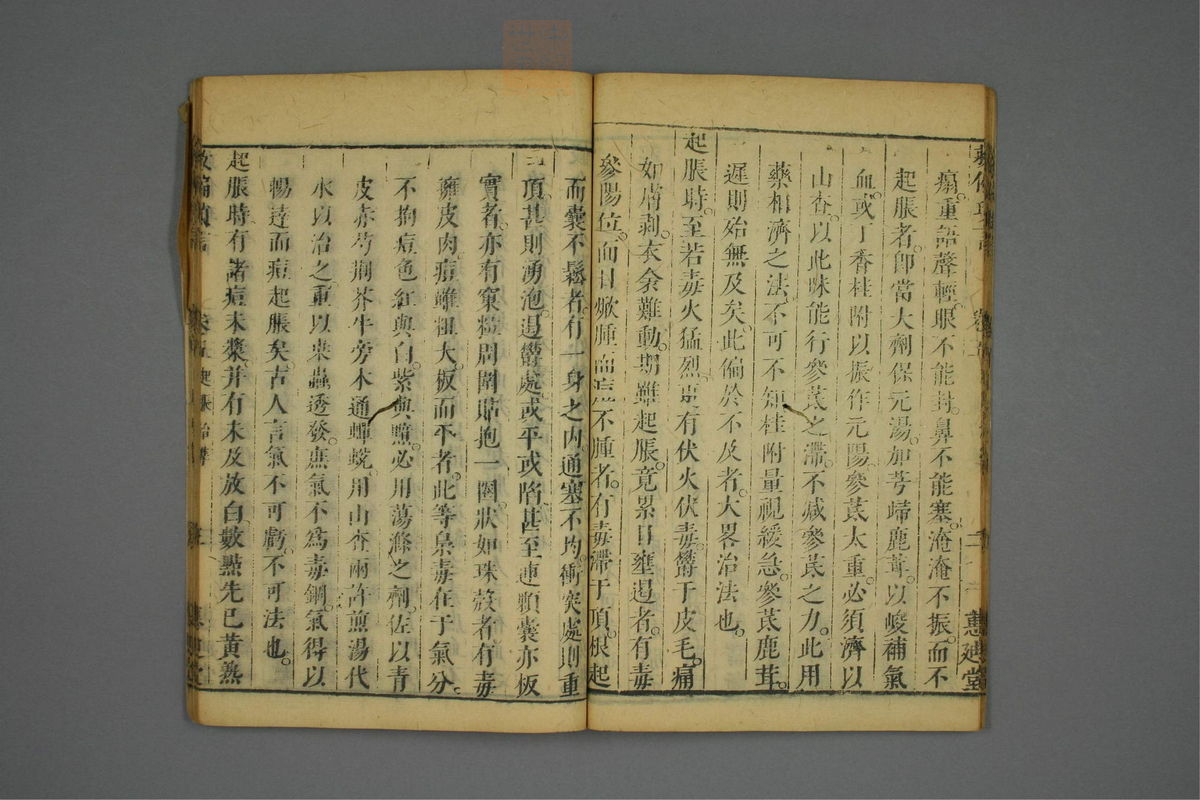 惠廸堂
瘍。重語聲輕。眼不能封。鼻不能塞。淹淹不振。而不
起脹者。卽當大劑保元湯。加芎歸鹿茸。以峻補氣
血。或丁香桂附以振作元陽。參芪太重。必須濟以
山査。以此味能行參芪之滯。不减參芪之力。此用
藥相濟之法。不可不知。桂附量視緩急。參芪鹿茸。
遲則殆無及矣。此偏於不及者。大畧治法也。
起脹時。至若毒火猛烈。更有伏火伏毒。欝于皮毛。痛
如膚剥。衣衾難動。期雖起脹。竟累日壅遏者。有毒
參陽位。面目燉腫而 不腫者。有毒滯于頂。根起
而囊不鬆者。有一身之内。通塞不均。衝突處則重
頂。甚則湧泡。遏欝處。或平或陷。甚至連顆囊亦板
實者。亦有窠粒周圍貼抱一圈。狀如珠殻者。有毒
壅皮肉。痘雖粗大。板而平者。此等梟毒在于氣分。
不拘痘色紅與白。紫與黯。必用蕩滌之劑。佐以青
皮赤芍荆芥牛旁木通蟬蛻。用山査兩許煎湯代
水以治之。重以桒蟲透發。庶氣不爲毒錮。氣得以
暢達而痘起脹矣。古人言氣不可虧。不可法也。
起脹時。有諸痘未漿。并有未及放白。數㸃先已黄熟
救偏瑣言